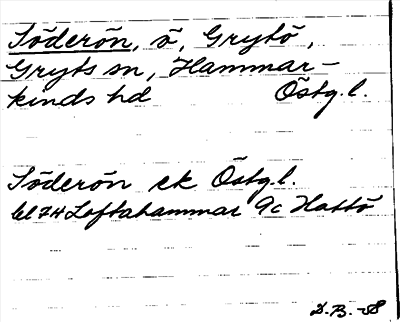 Söderön, ö, Grytö,
Gryts sn, Hammar-
kinds hd Östg.l.
Söderön ek Östg.l.
bl 74 Loftahammar 9c Hattö
D.B. -58